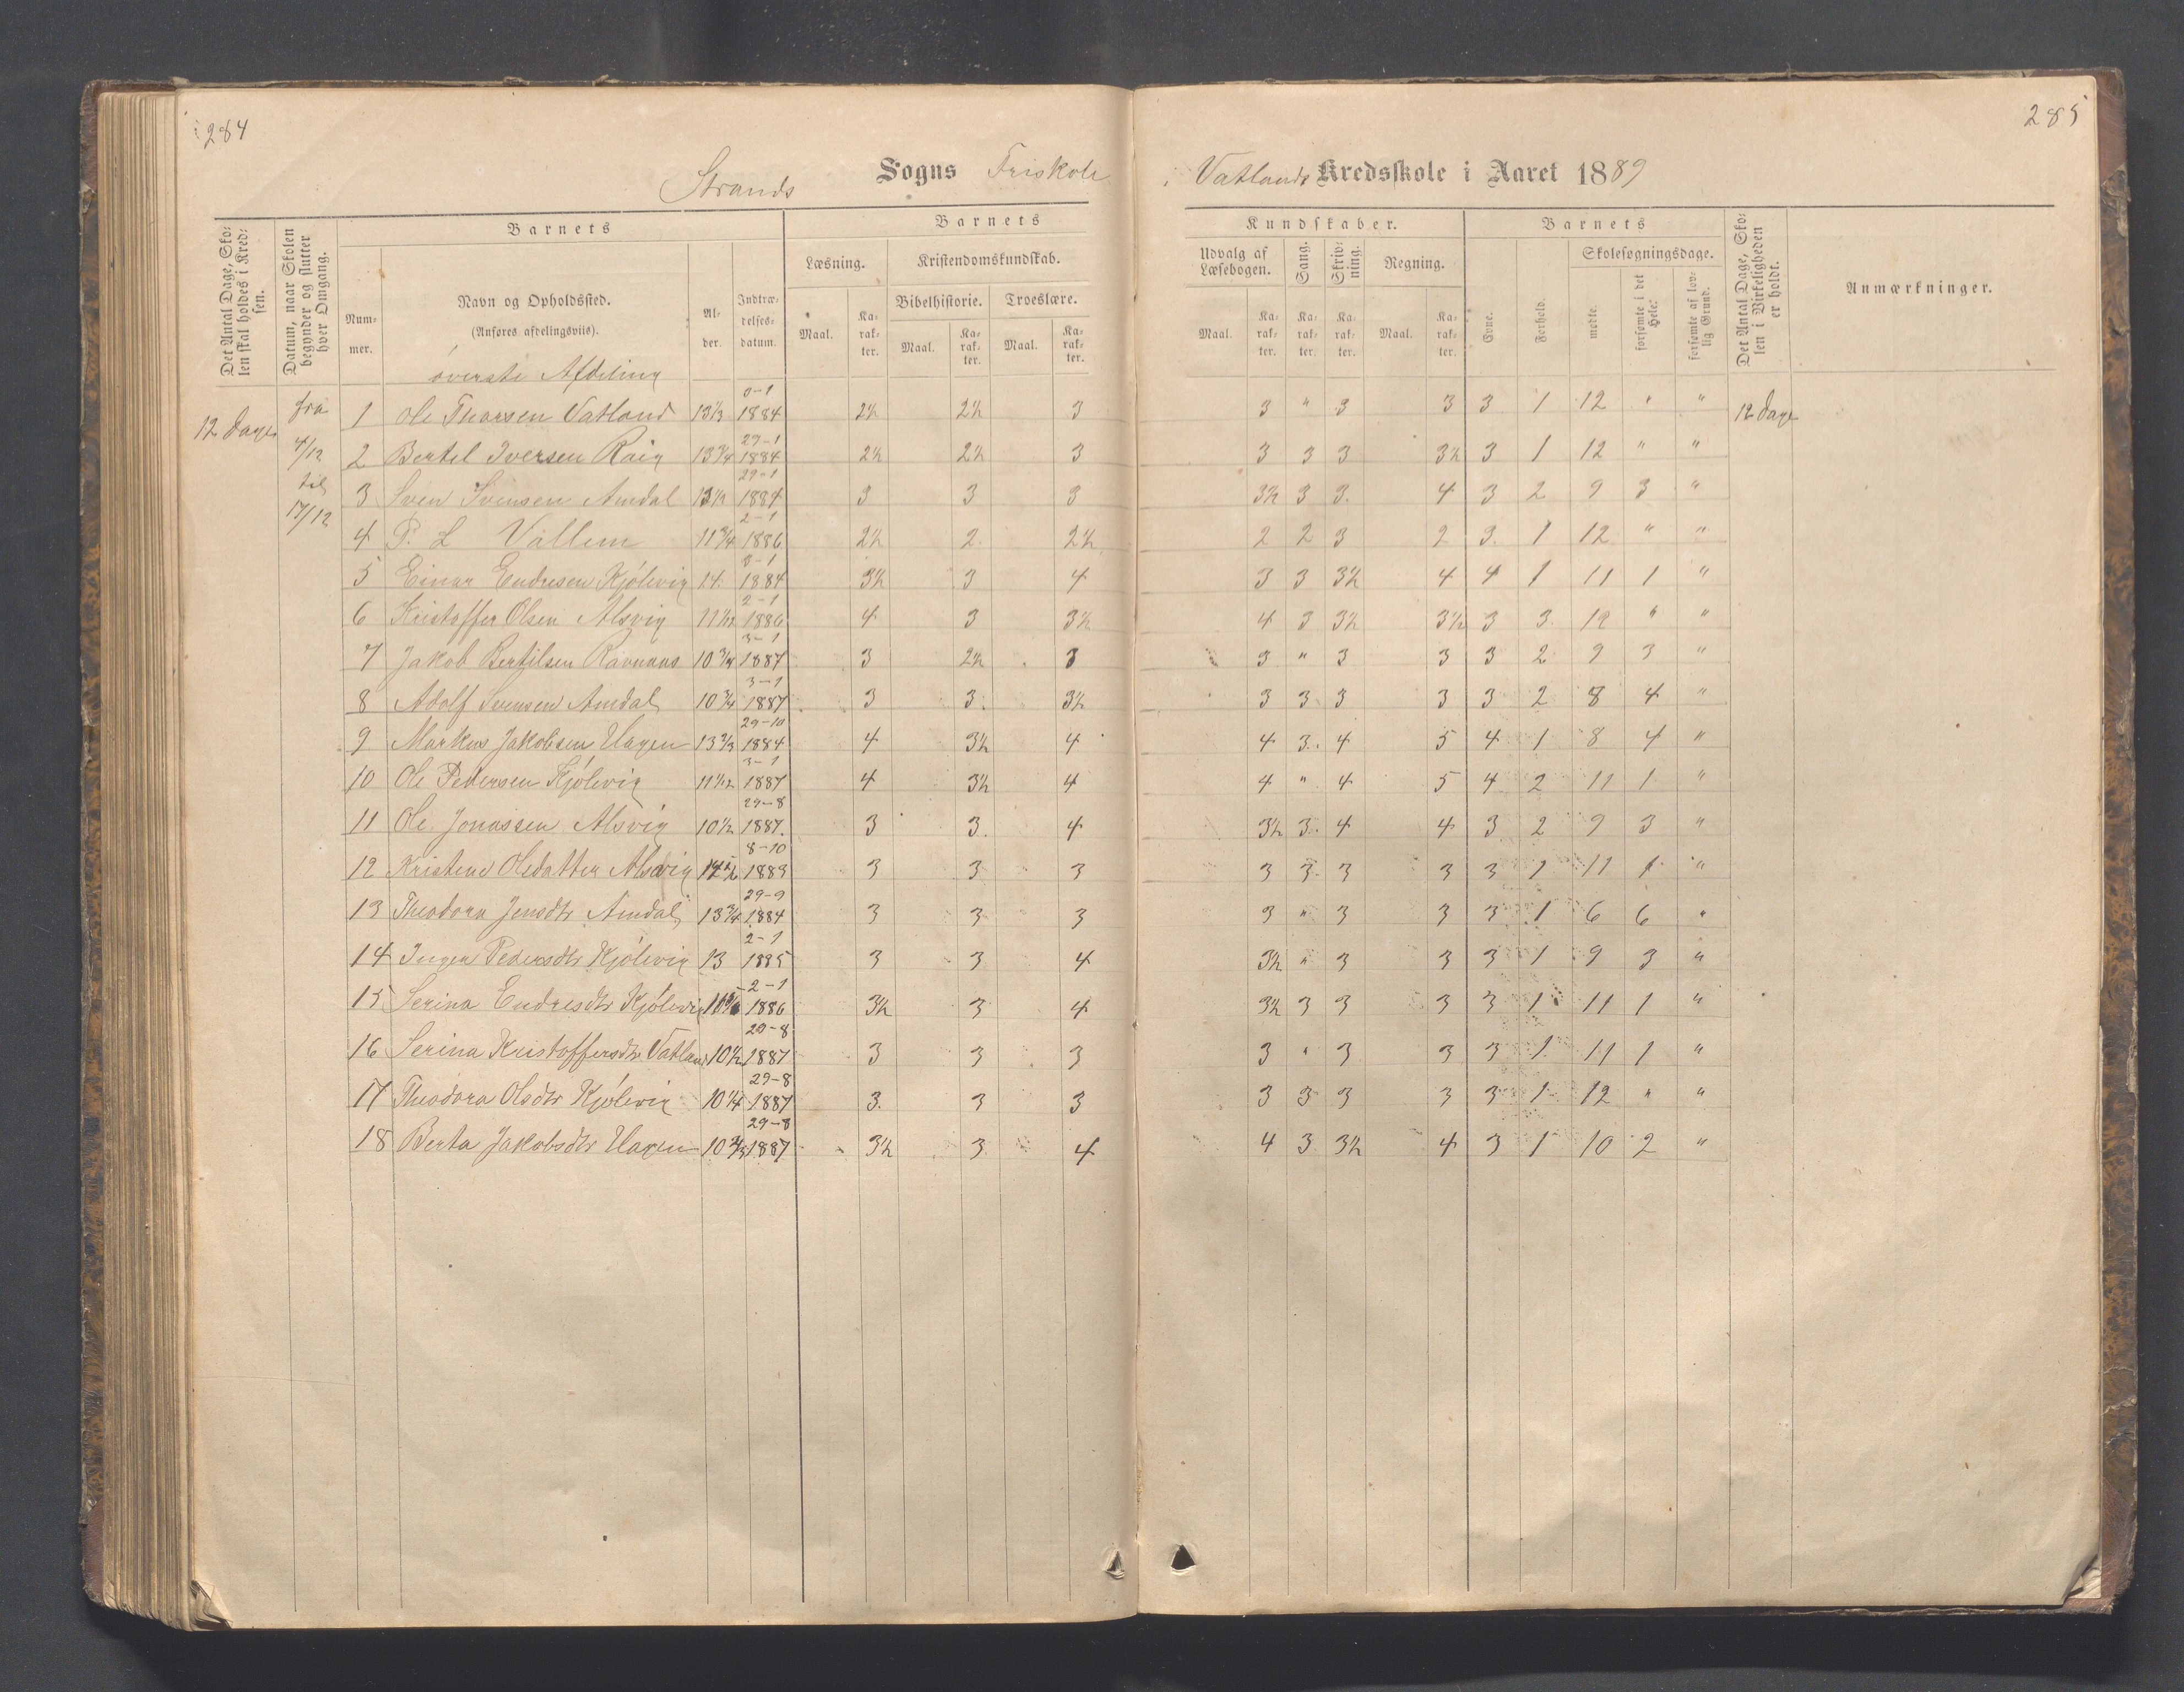 284
285
Strands Sogns Friskole i Vatlands Kredsskole i Aaret 1889
Det Antal Dage, Skolen skal holdes i Kredsen.
Datum, naar Skolen begynder og slutter hver Omgang.
Barnets
Nummer.
Navn og Opholdssted.
(Anføres afdelingsviis).
Alder.
Indtrædelsesdatum.
Barnets
Læsning.
Kristendomskundskab.
Bibelhistorie.
Troeslære.
Maal.
Karakter.
Maal.
Karakter.
Maal.
Karakter.
Kundskaber.
Udvalg af Læsebogen.
Sang.
Skrivning.
Regning.
Maal.
Karakter.
Karakter.
Karakter.
Maal.
Karakter.
Barnets
Evne.
Forhold.
Skolesøgningsdage.
mødte.
forsømte i det Hele.
forsømte af lovlig Grund.
Det Antal Dage, Skolen i Virkeligheden er holdt.
Anmærkninger.
øverste Afdeling
12 Dage
fra
4/12
til
17/12
1 Ole Thorsen Vatland 13 1/3 1884 2½ 2½ 3 3 " 3 3 3 1 12 " " 12 Dage
2 Bertel Iversen Raig 13 3/4 29-1 1884 2½ 2½ 3 3 3 3 3½ 3 1 12 " "
3 Sven Svensen Amdal 13½ 29-1 1884 3 3 3 3½ 3 3 4 3 2 9 3 "
4 P. L Vallem 11 3/4 2-1 1886 2½ 2 2½ 2 2 3 2 3 1 12 " "
5 Einar Endresen Kjölevig 14 8-1 1884 3½ 3 4 3 3 3½ 4 4 1 11 1 "
6 Kristoffer Olsen Alsvig 11 1/12 2-1 1886 4 3 3½ 4 3 3½ 3½ 3 3 12 " "
7 Jakob Bertilsen Ravnaas 10 3/4 3-1 1887 3 2½ 3 3 " 3 3 3 2 9 3 "
8 Adolf Svensen Amdal 10 3/4 3-1 1887 3 3 3½ 3 3 3 3 3 2 8 4 "
9 Markus Jakobsen Hagen 13 2/3 29-10 1884 4 3½ 4 4 3 4 5 4 1 8 4 "
10 Ole Pedersen Kjölevig 11 1/12 3-1 1887 4 3½ 4 4 " 4 5 4 2 11 1 "
11 Ole Jonassen Alsvig 10½ 29-8 1887 3 3 4 3½ 3 4 4 3 2 9 3 "
12 Kristene Olsdatter Alsvig 8-10 1883 3 3 3 3 3 3 3 3 1 11 1 "
13 Theodora Jensdtr Amdal 13 3/4 29-9 1884 3 3 3 3 " 3 3 3 1 6 6 "
14 Inger Pedersdtr Kjölevig 13 2-1 1885 3 3 4 3½ " 3 3 3 1 9 3 "
15 Serina Endresdtr Kjölevig 2-1 1886 3½ 3 4 3½ 3 3 3 3 1 11 1 "
16 Serina Kristoffersdtr Vatland 10½ 29-8 1887 3 3 3 3 " 3 3 3 1 11 1 "
17 Theodora Olsdtr Kjölevig 10 1/4 29-8 1887 3 3 3 3 3 3 3 3 1 12 " "
18 Berta Jakobsdtr Hagen 10 2/3 29-8 1887 3½ 3 4 4 3 3½ 4 3 1 10 2 "